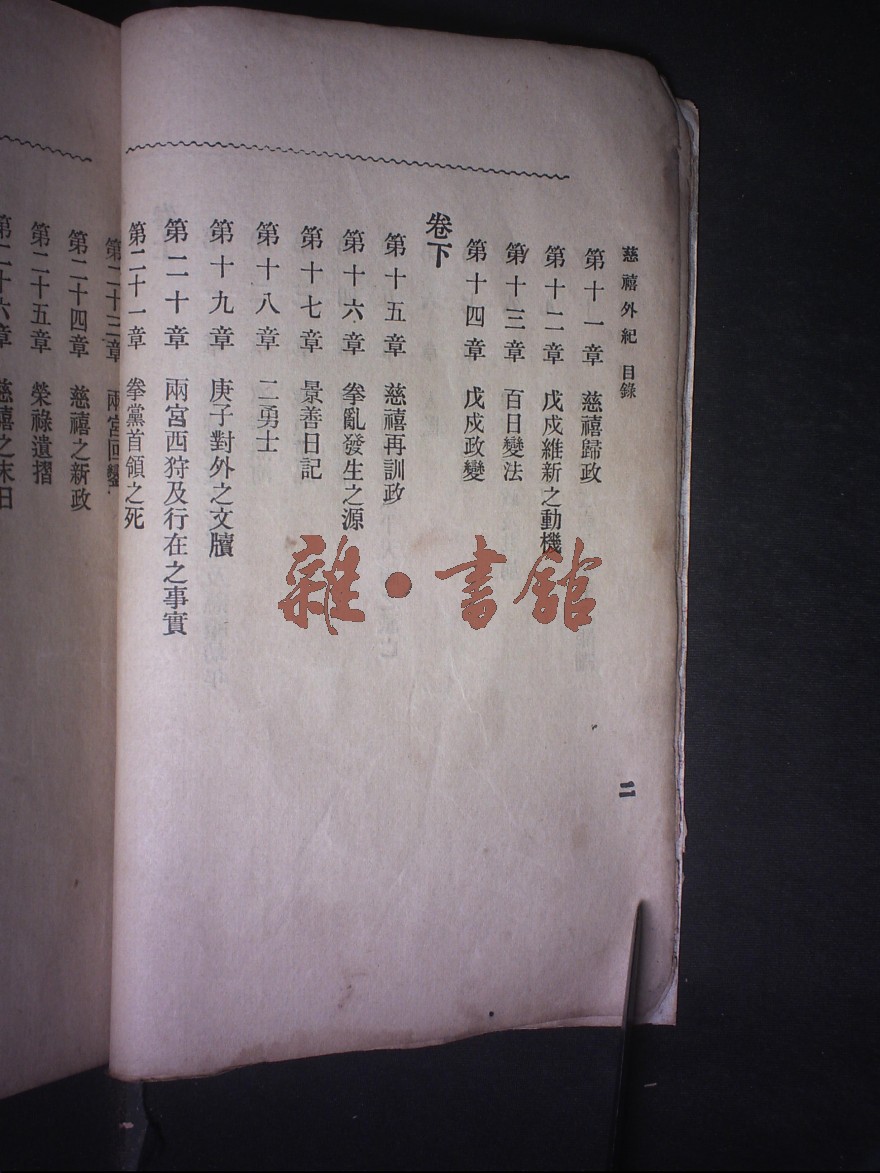 慈禧外紀 目錄
二
第十一章 慈禧歸政
第十二章 戊戌維新之動機
第十三章 百日變法
第十四章 戊戌政變
卷下
第十五章 慈禧再訓政
第十六章 拳亂發生之源
第十七章 景善日記
第十八章 二勇士
第十九章 庚子對外之文牘
第二十章 兩宮西狩及行在之事實
第二十一章 拳黨首領之死
第二十三章 兩宮回鑾
第二十四章 慈禧之新政
第二十五章 榮祿遺摺
第二十六章 慈禧之末日
雜·書館